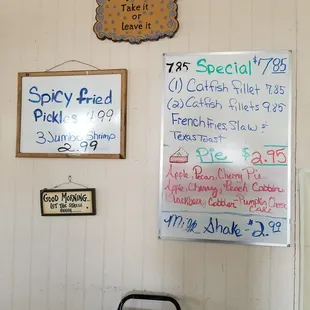 Take it
or leave it
Spicy fried
Pickles 4.99
3 Jumbo Shrimp
2.99
GOOD MORNING...
LET THE STRESS
BEGIN...
7.85 Special $7.85
(1) Catfish fillet 7.85
(2) Catfish fillets 9.85
French fries, Slaw &
Texas Toast
Pie $2.95
Apple, Pecan, Cherry Pie
Apple, Cherry, Peach Cobbler
Blackberry Cobbler - Pumpkin Cheese
Cake
Milk Shake - $2.99